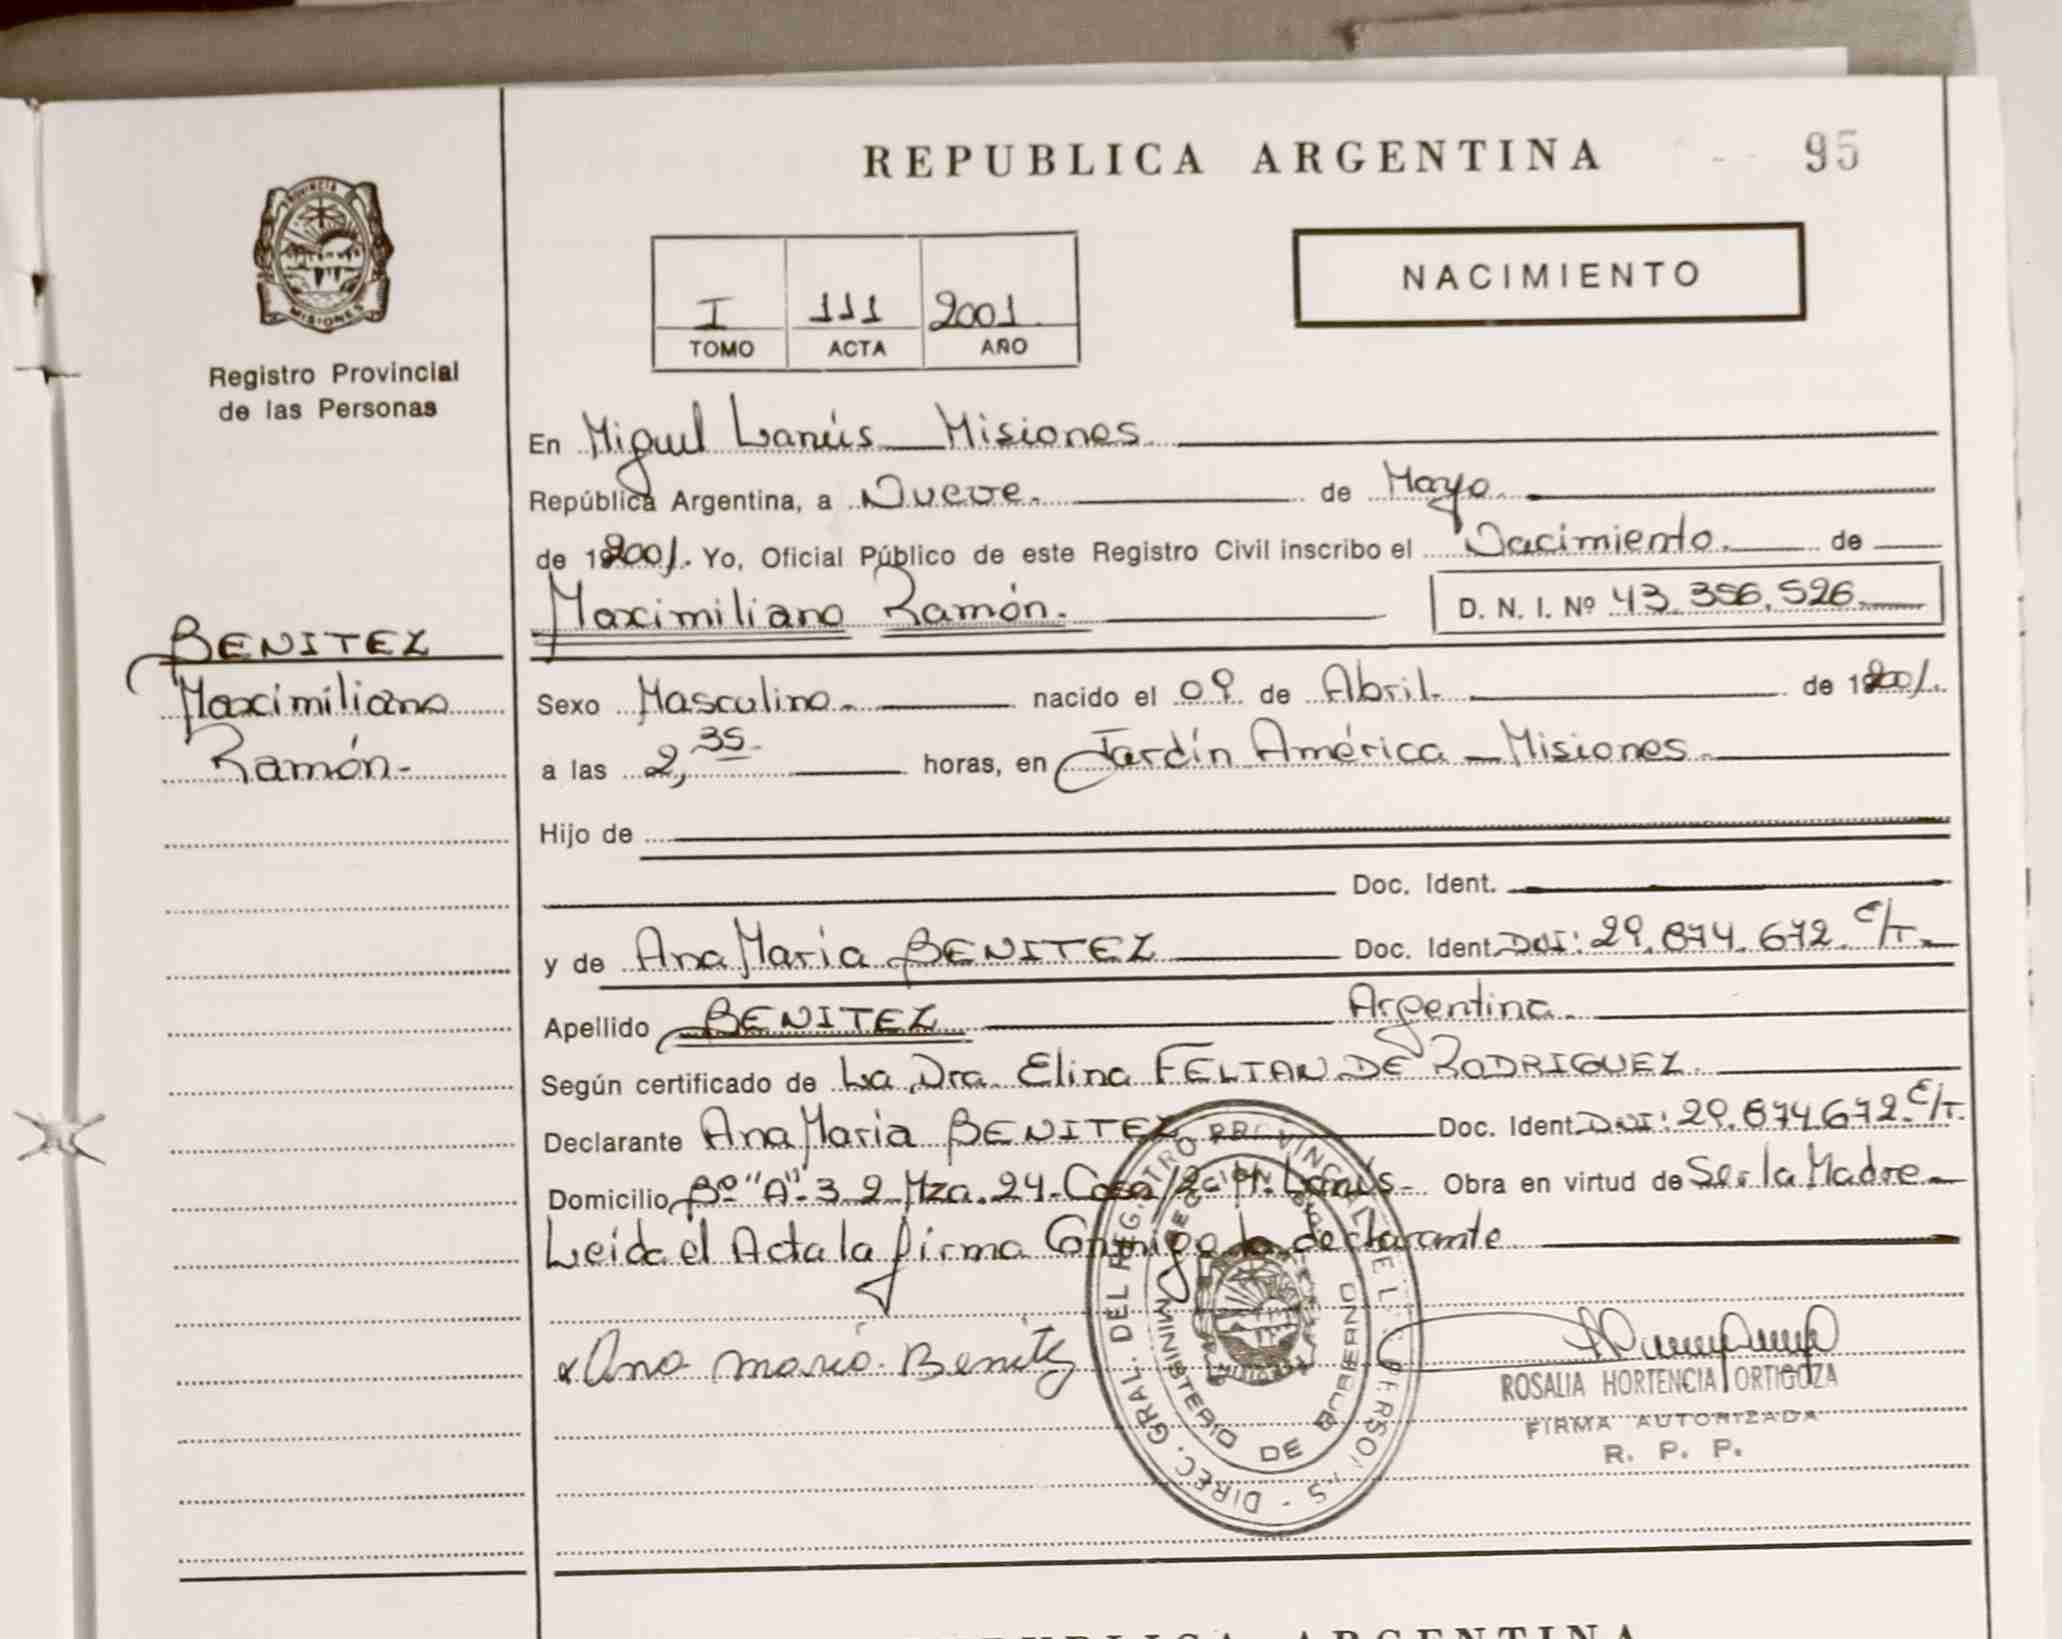 REPUBLICA ARGENTINA
95
PROVINCIA
MISIONES
Registro Provincial
de las Personas
I 111 2001
TOMO ACTA AÑO
NACIMIENTO
En Miguel Lanús Misiones
República Argentina, a Nueve. de Mayo
de 192001. Yo, Oficial Público de este Registro Civil inscribo el Nacimiento. de
Maximiliano Ramón. D. N. I. Nº 43.356.526
BENITEZ
Maximiliano
Ramón-
Sexo Masculino. nacido el 09 de Abril. de 192001.
a las 2,35 horas, en Jardín América - Misiones.
Hijo de
Doc. Ident.
y de Ana Maria BENITEZ Doc. Ident. DNI: 29.874.672 C/T.
Apellido BENITEZ Argentina.
Según certificado de La Dra. Elina FELTAN DE RODRIGUEZ
Declarante Ana Maria BENITEZ Doc. Ident. DNI: 29.874.672 C/T.
Domicilio Bº "A"-3 2 Mza. 24- Casa 12- M. Lanús- Obra en virtud de Ser la Madre
Leida el Acta la firma Conmigo la declarante
Ana maria Benitez
DIREC. GRAL. DEL REGISTRO PROVINCIAL DE L PERSON S
MINISTERIO DE GOBIERNO
MISIONES
ROSALIA HORTENCIA ORTIGOZA
FIRMA AUTORIZADA
R. P. P.
REPUBLICA ARGENTINA